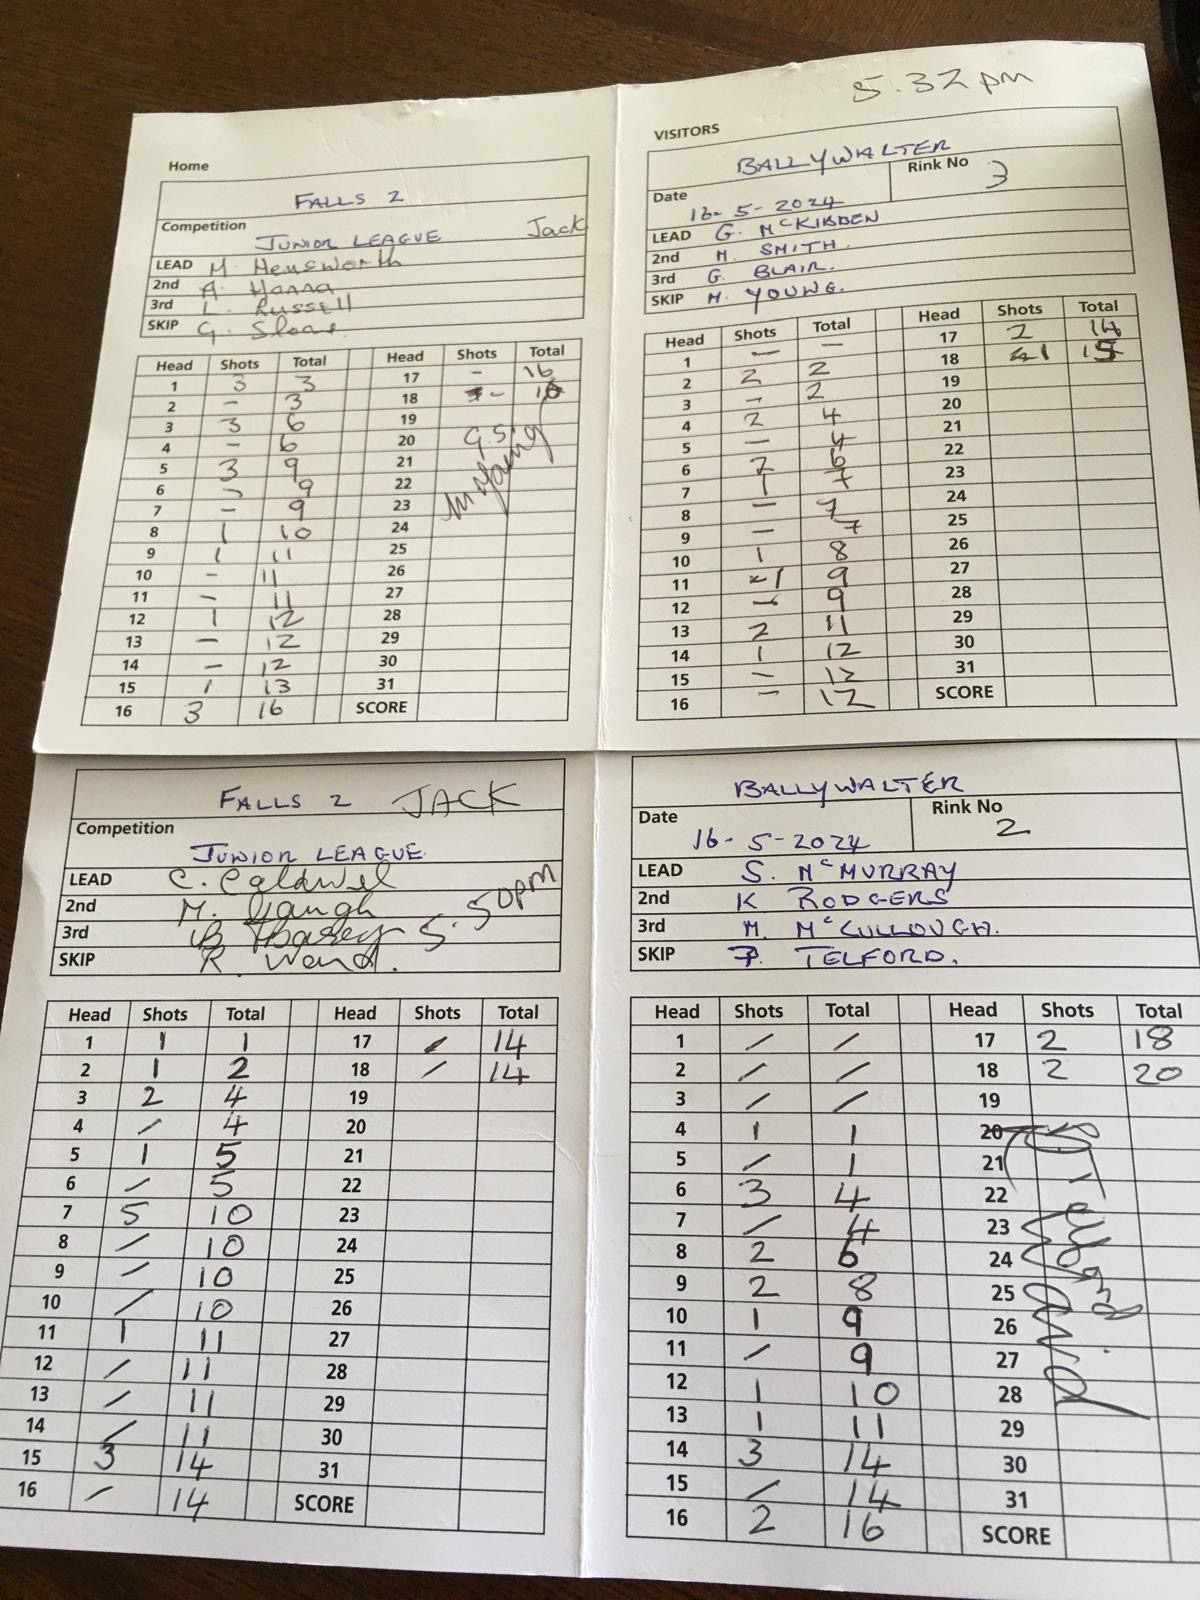 5.32 pm
Home
FALLS 2
Competition
JUNIOR LEAGUE Jack
LEAD M. Hensworth
2nd A. Hanna
3rd L. Russell
SKIP G. Sloane.
Head Shots Total Head Shots Total
1 3 3 17 - 16
2 - 3 18 - 16
3 3 6 19
4 - 6 20 G.S.
5 3 9 21 M Young
6 - 9 22
7 - 9 23
8 1 10 24
9 1 11 25
10 - 11 26
11 - 11 27
12 1 12 28
13 - 12 29
14 - 12 30
15 1 13 31
16 3 16 SCORE
VISITORS
BALLYWALTER
Date Rink No 3
16-5-2024
LEAD G. McKIBBEN
2nd M. SMITH.
3rd G. BLAIR.
SKIP M. YOUNG.
Head Shots Total Head Shots Total
1 - - 17 2 14
2 2 2 18 1 15
3 - 2 19
4 2 4 20
5 - 4 21
6 2 6 22
7 1 7 23
8 - 7 24
9 - 7 25
10 1 8 26
11 1 9 27
12 - 9 28
13 2 11 29
14 1 12 30
15 - 12 31
16 - 12 SCORE
FALLS 2 JACK
Competition
JUNIOR LEAGUE
LEAD C. Caldwel
2nd M. Gaugh
3rd B 5.50pm
SKIP R. Ward.
Head Shots Total Head Shots Total
1 1 1 17 / 14
2 1 2 18 / 14
3 2 4 19
4 / 4 20
5 1 5 21
6 / 5 22
7 5 10 23
8 / 10 24
9 / 10 25
10 / 10 26
11 1 11 27
12 / 11 28
13 / 11 29
14 / 11 30
15 3 14 31
16 / 14 SCORE
BALLYWALTER
Date Rink No
16-5-2024 2
LEAD S. McMURRAY
2nd K RODGERS
3rd M. McCULLOUGH.
SKIP P. TELFORD.
Head Shots Total Head Shots Total
1 / / 17 2 18
2 / / 18 2 20
3 / / 19
4 1 1 20
5 / 1 21
6 3 4 22
7 / 4 23
8 2 6 24
9 2 8 25
10 1 9 26
11 / 9 27
12 1 10 28
13 1 11 29
14 3 14 30
15 / 14 31
16 2 16 SCORE